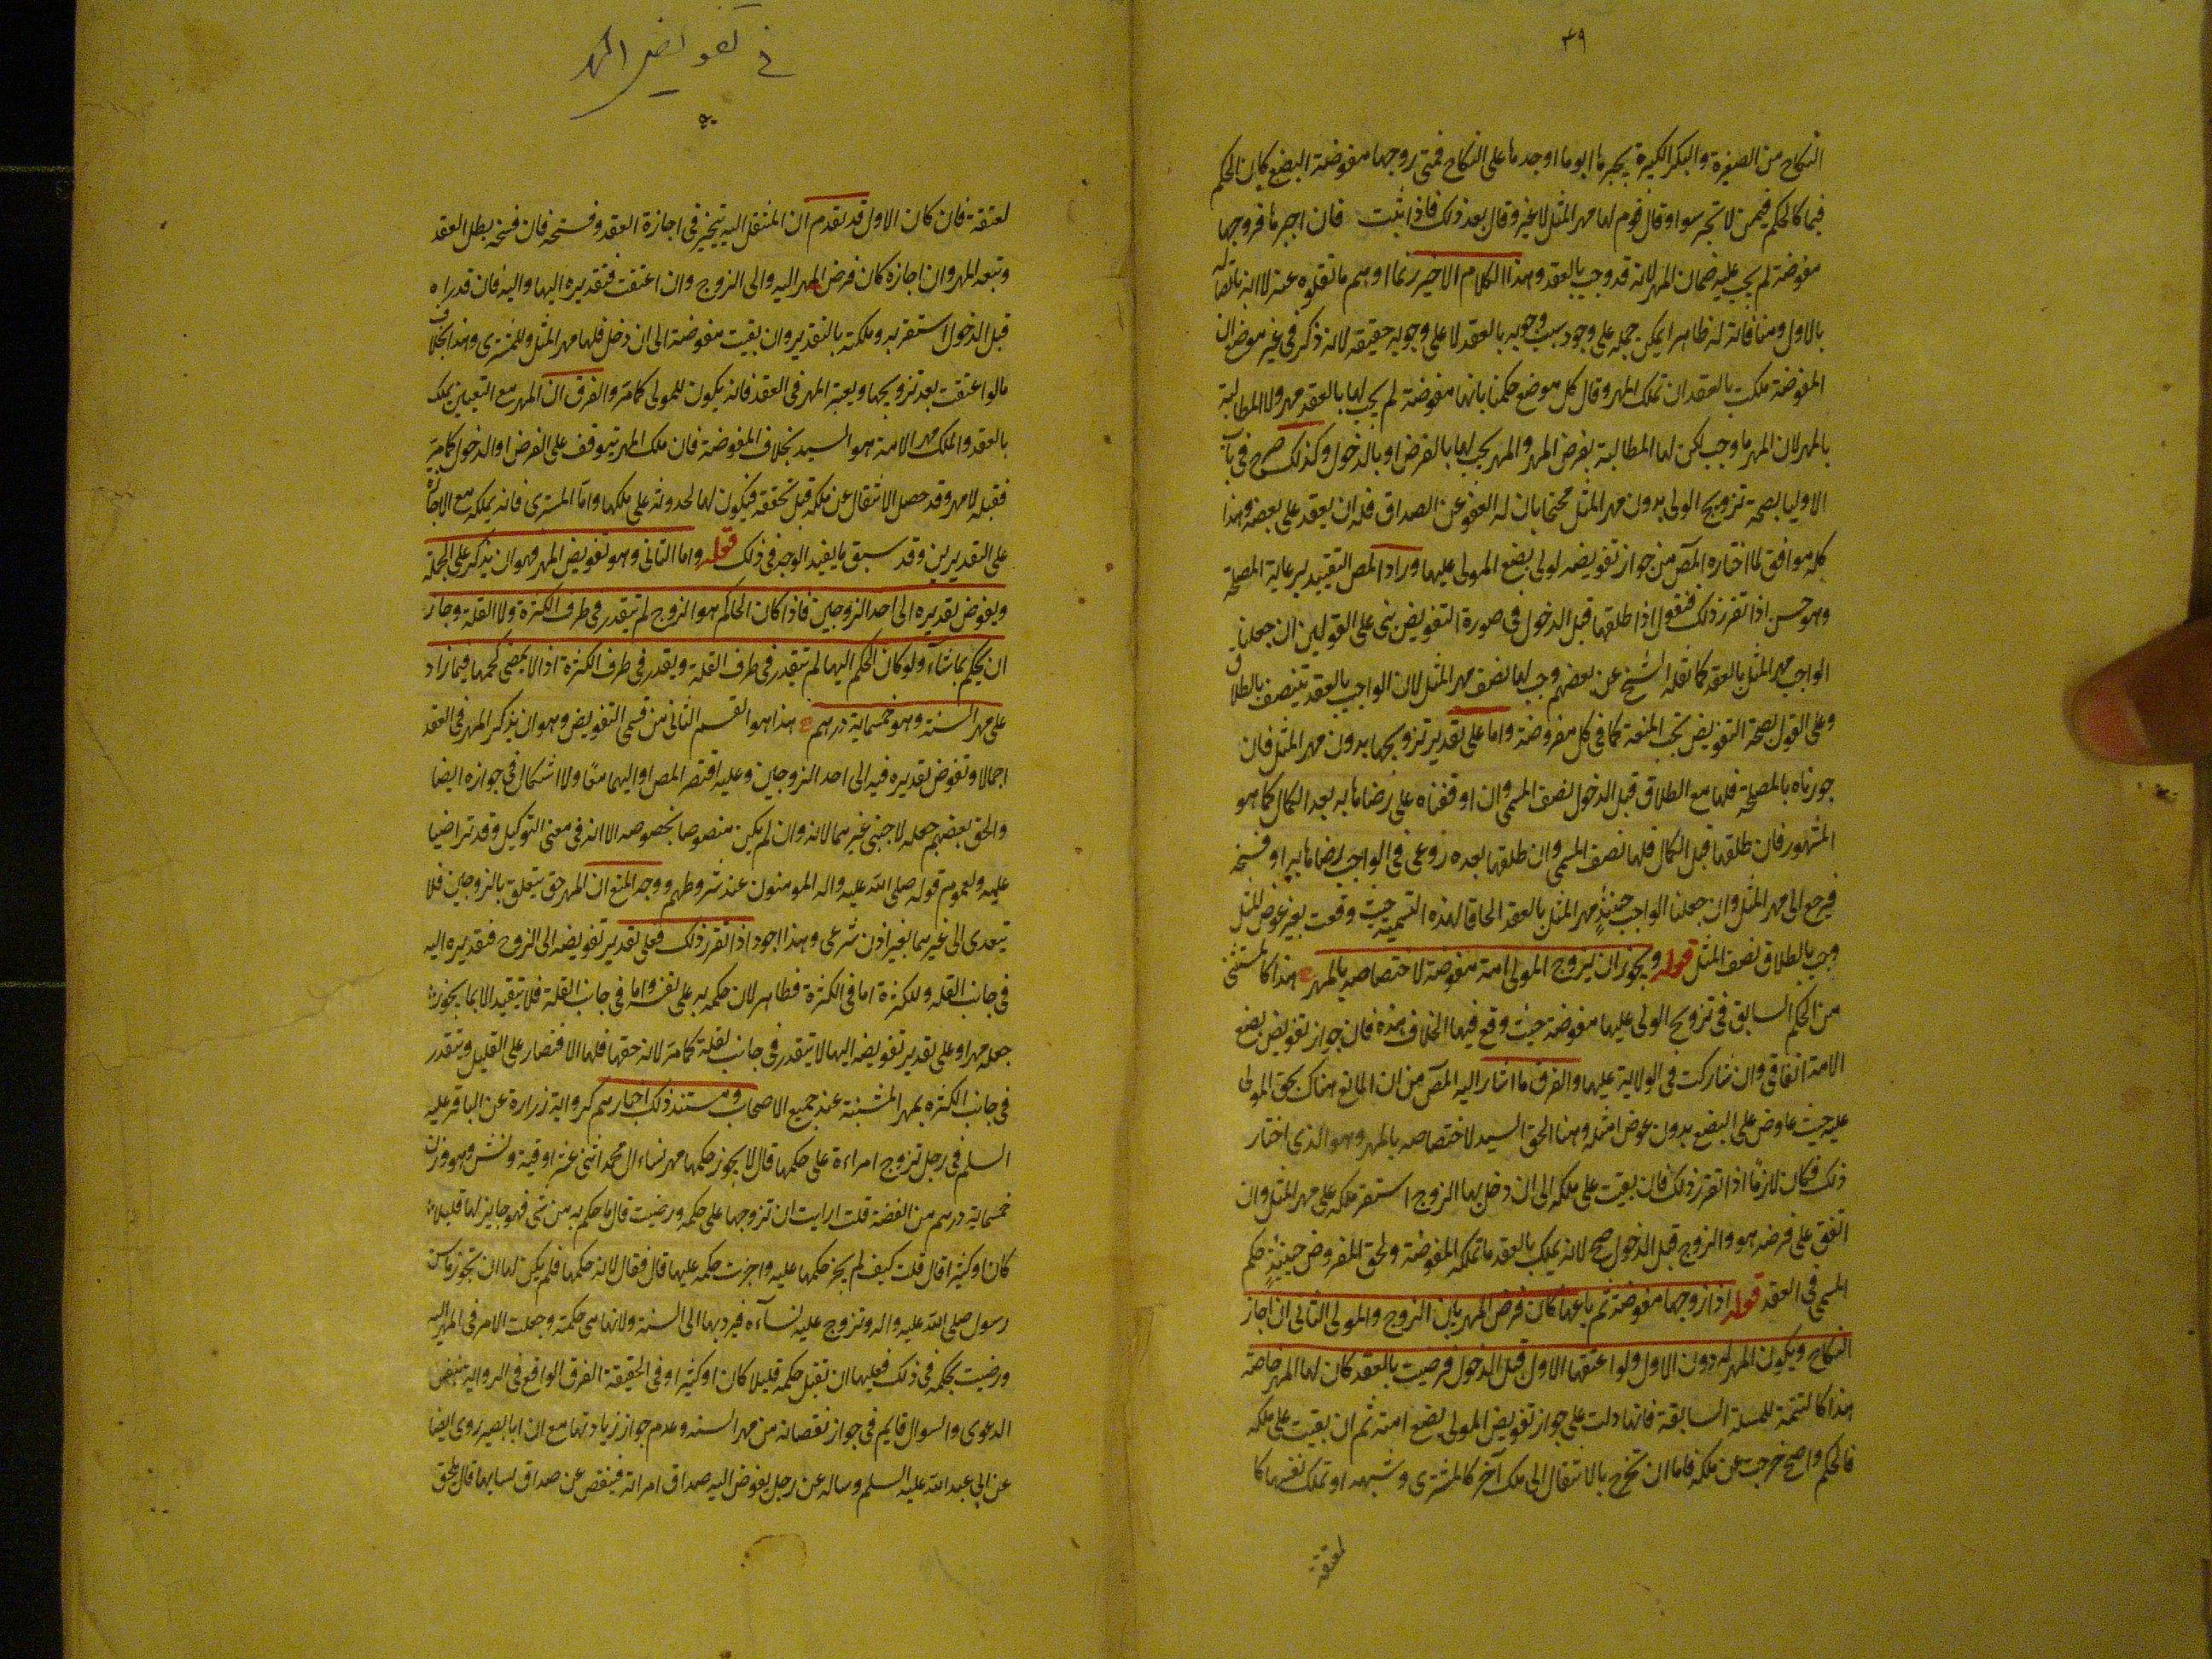 ٣٩
النكاح من الصغيرة والبكر الكبيرة يجبرها ابوها او جدها على النكاح فمتى زوجها مفوضة البضع كان الحكم
فيها كالحكم فيمن لا تجبر سواء وقال قوم لها مهر المثل لا غير وقال بعد ذلك فاذا ثبت فان اجبرها فزوجها
مفوضة لم يجب عليه ضمان المهر لانه قد وجب بالعقد وهذا الكلام الاخير ربما اوهم ما نقلوه عنه لا انه باتصاله
بالاول ومنافاته له ظاهرا يمكن حمله على وجود سبب وجوبه بالعقد لا على وجوبه حقيقة لانه ذكر في غير موضع ان
المفوضة ملكت بالعقد ان تملك المهر وقال كل موضع حكمنا بانها مفوضة لم يجب لها بالعقد مهر ولا المطالبة
بالمهر لان المهر ما وجب لكن لها المطالبة بفرض المهر والمهر يجب لها بالفرض او بالدخول وكذلك صرح في باب
الاوليا بصحة تزويج الولى بدون مهر المثل محتجا بان له العفو عن الصداق فله ان يعقد على بعضه وهذا
كله موافق لما اختاره المص من جواز تفويضه لولى بضع المولى عليها وزاد المص التقييد برعاية المصلحة
وهو حسن اذا تقرر ذلك فنقول اذا طلقها قبل الدخول في صورة التفويض بنى على القولين ان جعلنا
الواجب مهر المثل بالعقد كما نقله الشيخ عن بعضهم وجب لها نصف مهر المثل لان الواجب بالعقد يتنصف بالطلاق
وعلى القول بصحة التفويض تجب المتعة كما في كل مفوضة واما على تقدير تزويجها بدون مهر المثل فان
جوزناه بالمصلحة فلها مع الطلاق قبل الدخول نصف المسمى وان اوقفناه على رضاها به بعد الكمال كما هو
المشهور فان طلقها قبل الكمال فلها نصف المسمى وان طلقها بعده روعى في الواجب رضاها به او فسخه
فيرجع الى مهر المثل وان جعلنا الواجب حينئذ مهر المثل بالعقد الحاقا لهذه التسمية حيث وقعت بغير عوض المثل
وجب بالطلاق نصف المثل قوله ويجوز ان يزوج المولى امته مفوضة لاختصاصه بالمهر هذا كالمستثنى
من الحكم السابق في تزويج الولى عليها مفوضة حيث وقع فيها الخلاف هذه فان جواز تفويض بضع
الامة اتفاقى وان شاركت في الولاية عليها والفرق ما اشار اليه المص من ان المانع هناك بحق المولى
عليه حيث عاوض على البضع بدون عوض امثله وهنا الحق السيد لاختصاصه بالمهر وهو الذى اختار
ذلك فكان لازما اذا تقرر ذلك فان بقيت على ملكه الى ان دخل بها الزوج استقر ملكه على مهر المثل وان
اتفق على فرضه هو والزوج قبل الدخول صح لانه يملك بالعقد ما تملكه المفوضة ولحق المفروض حينئذ حكم
المسمى في العقد قوله اذا زوجها مفوضة ثم باعها كان فرض المهر بين الزوج والمولى الثانى ان اجاز
النكاح ويكون المهر له دون الاول ولو اعتقها الاول قبل الدخول فرضيت بالعقد كان لها المهر خاصة
هذا كالتتمة للمسلة السابقة فانها دلت على جواز تفويض المولى بضع امته ثم ان بقيت على ملكه
فالحكم واضح خرجت عن ملكه فاما ان تخرج بالانتقال الى ملك آخر كالمشترى وشبهه او تملك نفسها كا
لمعتقة
في تفويض المهر
لمعتقة فان كان الاول قد تقدم ان المنتقل اليه يتخير في اجازة العقد وفسخه فان فسخه بطل العقد
وتبعه المهر وان اجازه كان فرض المهر اليه والى الزوج وان اعتقت فتقديره اليها واليه فان قدراه
قبل الدخول استقر به وملكته بالتقدير وان بقيت مفوضة الى ان دخل فلها مهر المثل وللمشترى وهذا بخلاف
ما لو اعتقت بعد تزويجها وتعيين المهر في العقد فانه يكون للمولى كما مر والفرق ان المهر مع التعيين يملك
بالعقد والملك مهر الامة هو السيد بخلاف المفوضة فان ملك المهر يتوقف على الفرض او الدخول كما مر
فقبله لا مهر وقد حصل الانتقال عن ملكه قبل تحققه فيكون لها لحدوثه على ملكها واما المشترى فانه يملكه مع الاجازة
على التقديرين وقد سبق ما يفيد الوجه في ذلك قوله واما الثانى وهو تفويض المهر فهو ان يذكر على الجملة
ويفوض تقديره الى احد الزوجين فاذا كان الحاكم هو الزوج لم يتقدر في طرف الكثرة ولا القلة وجاز
ان يحكم بما شاء ولو كان الحكم اليها لم يتقدر في طرف القلة ويقدر في طرف الكثرة اذ لا يمضى حكمها فيما زاد
على مهر السنة وهو خمسماية درهم هذا هو القسم الثانى من قسمى التفويض وهو ان يذكر المهر في العقد
اجمالا وتفوض تقديره فيه الى احد الزوجين وعليه اقتصر المص او اليهما معا ولا اشكال في جوازه ايضا
والحق بعضهم جعله لاجنبى غيرهما لانه وان لم يكن منصوصا بخصوصه الا انه في معنى التوكيل وقد تراضيا
عليه ولعموم قوله صلى الله عليه واله المومنون عند شروطهم ووجه المنع ان المهر حق يتعلق بالزوجين فلا
يتعدى الى غيرهما بغير اذن شرعى وهذا اجود اذا تقرر ذلك فعلى تقدير تفويضه الى الزوج فتقديره اليه
في جانب القلة والكثرة اما في الكثرة فظاهر لان حكمه به على نفسه واما في جانب القلة فلا يتقيد الا بما يجوز
جعله مهرا وعلى تقدير تفويضه اليها لا يتقدر في جانب القلة كما مر لانه حقها فلها الاقتصار على القليل ويتقدر
في جانب الكثرة بمهر السنة عند جميع الاصحاب ومستند ذلك اخبارهم كرواية زرارة عن الباقر عليه
السلم في رجل تزوج امراءة على حكمها قال لا يجوز حكمها مهر نساء ال محمد اثنى عشر اوقية ونش وهو وزن
خمسماية درهم من الفضة قلت ارايت ان تزوجها على حكمه ورضيت قال ما حكم به من شئ فهو جايز لها قليلا
كان او كثيرا قال قلت كيف لم يجز حكمها عليه واجزت حكمه عليها قال فقال لانه حكمها فلم يكن لها ان تجوز ما سن
رسول صلى الله عليه واله وتزوج عليه نساءه فرددتها الى السنة ولانها هى حكمته وجعلت الامر في المهر اليه
ورضيت بحكمه في ذلك فعليها ان تقبل حكمه قليلا كان او كثيرا وفى الحقيقة الفرق الواقع في الرواية بنفس
الدعوى والسوال قايم في جواز نقصانه من مهر السنه وعدم جواز زيادتها مع ان ابا بصير روى ايضا
عن ابي عبد الله عليه السلم وساله عن رجل يفوض اليه صداق امراته فينقص عن صداق نسايها قال يلحق